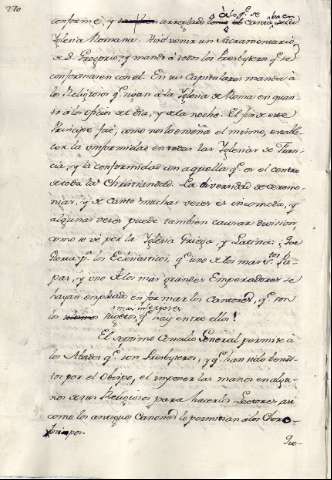 270
conforme, y arreglado a lo q.e se canta en la
Iglesia Romana. Hizo venir un Sacramentario
de S. Gregorio, y mandó á todos los Presbyteros q.e se
conformasen con el. En su Capitulario mandó á
los Religiosos q.e sigan á la Iglesia de Roma en quan-
to á los oficios de dia, y de la noche. El fin de este
Principe fué, como nos lo enseña el mismo, estable-
cer la uniformidad entre las Iglesias de Fran-
cia, y la conformidad con aquella q.e es el centro
de toda la Christiandad. La diversidad de ceremo-
nias, y de canto muchas veces es incomoda, y
algunas veces puede tambien causar division
como se vé por la Iglesia Griega, y Latina:
los Eclesiasticos, q.e uno de los Pa-
pas, y uno de los más grandes Emperadores se
hayan empleado en formar los Cantores, q.e son
los mas inferiores q.e hay entre ellos!
El septimo Concilio General permite á
los Abades q.e son Presbyteros, y q.e han sido bendi-
tos por el Obispo, el imponer las manos en algu-
nos de sus Religiosos para hacerlos Lectores, asi
como los antiguos Canones lo permitian á los Choro-